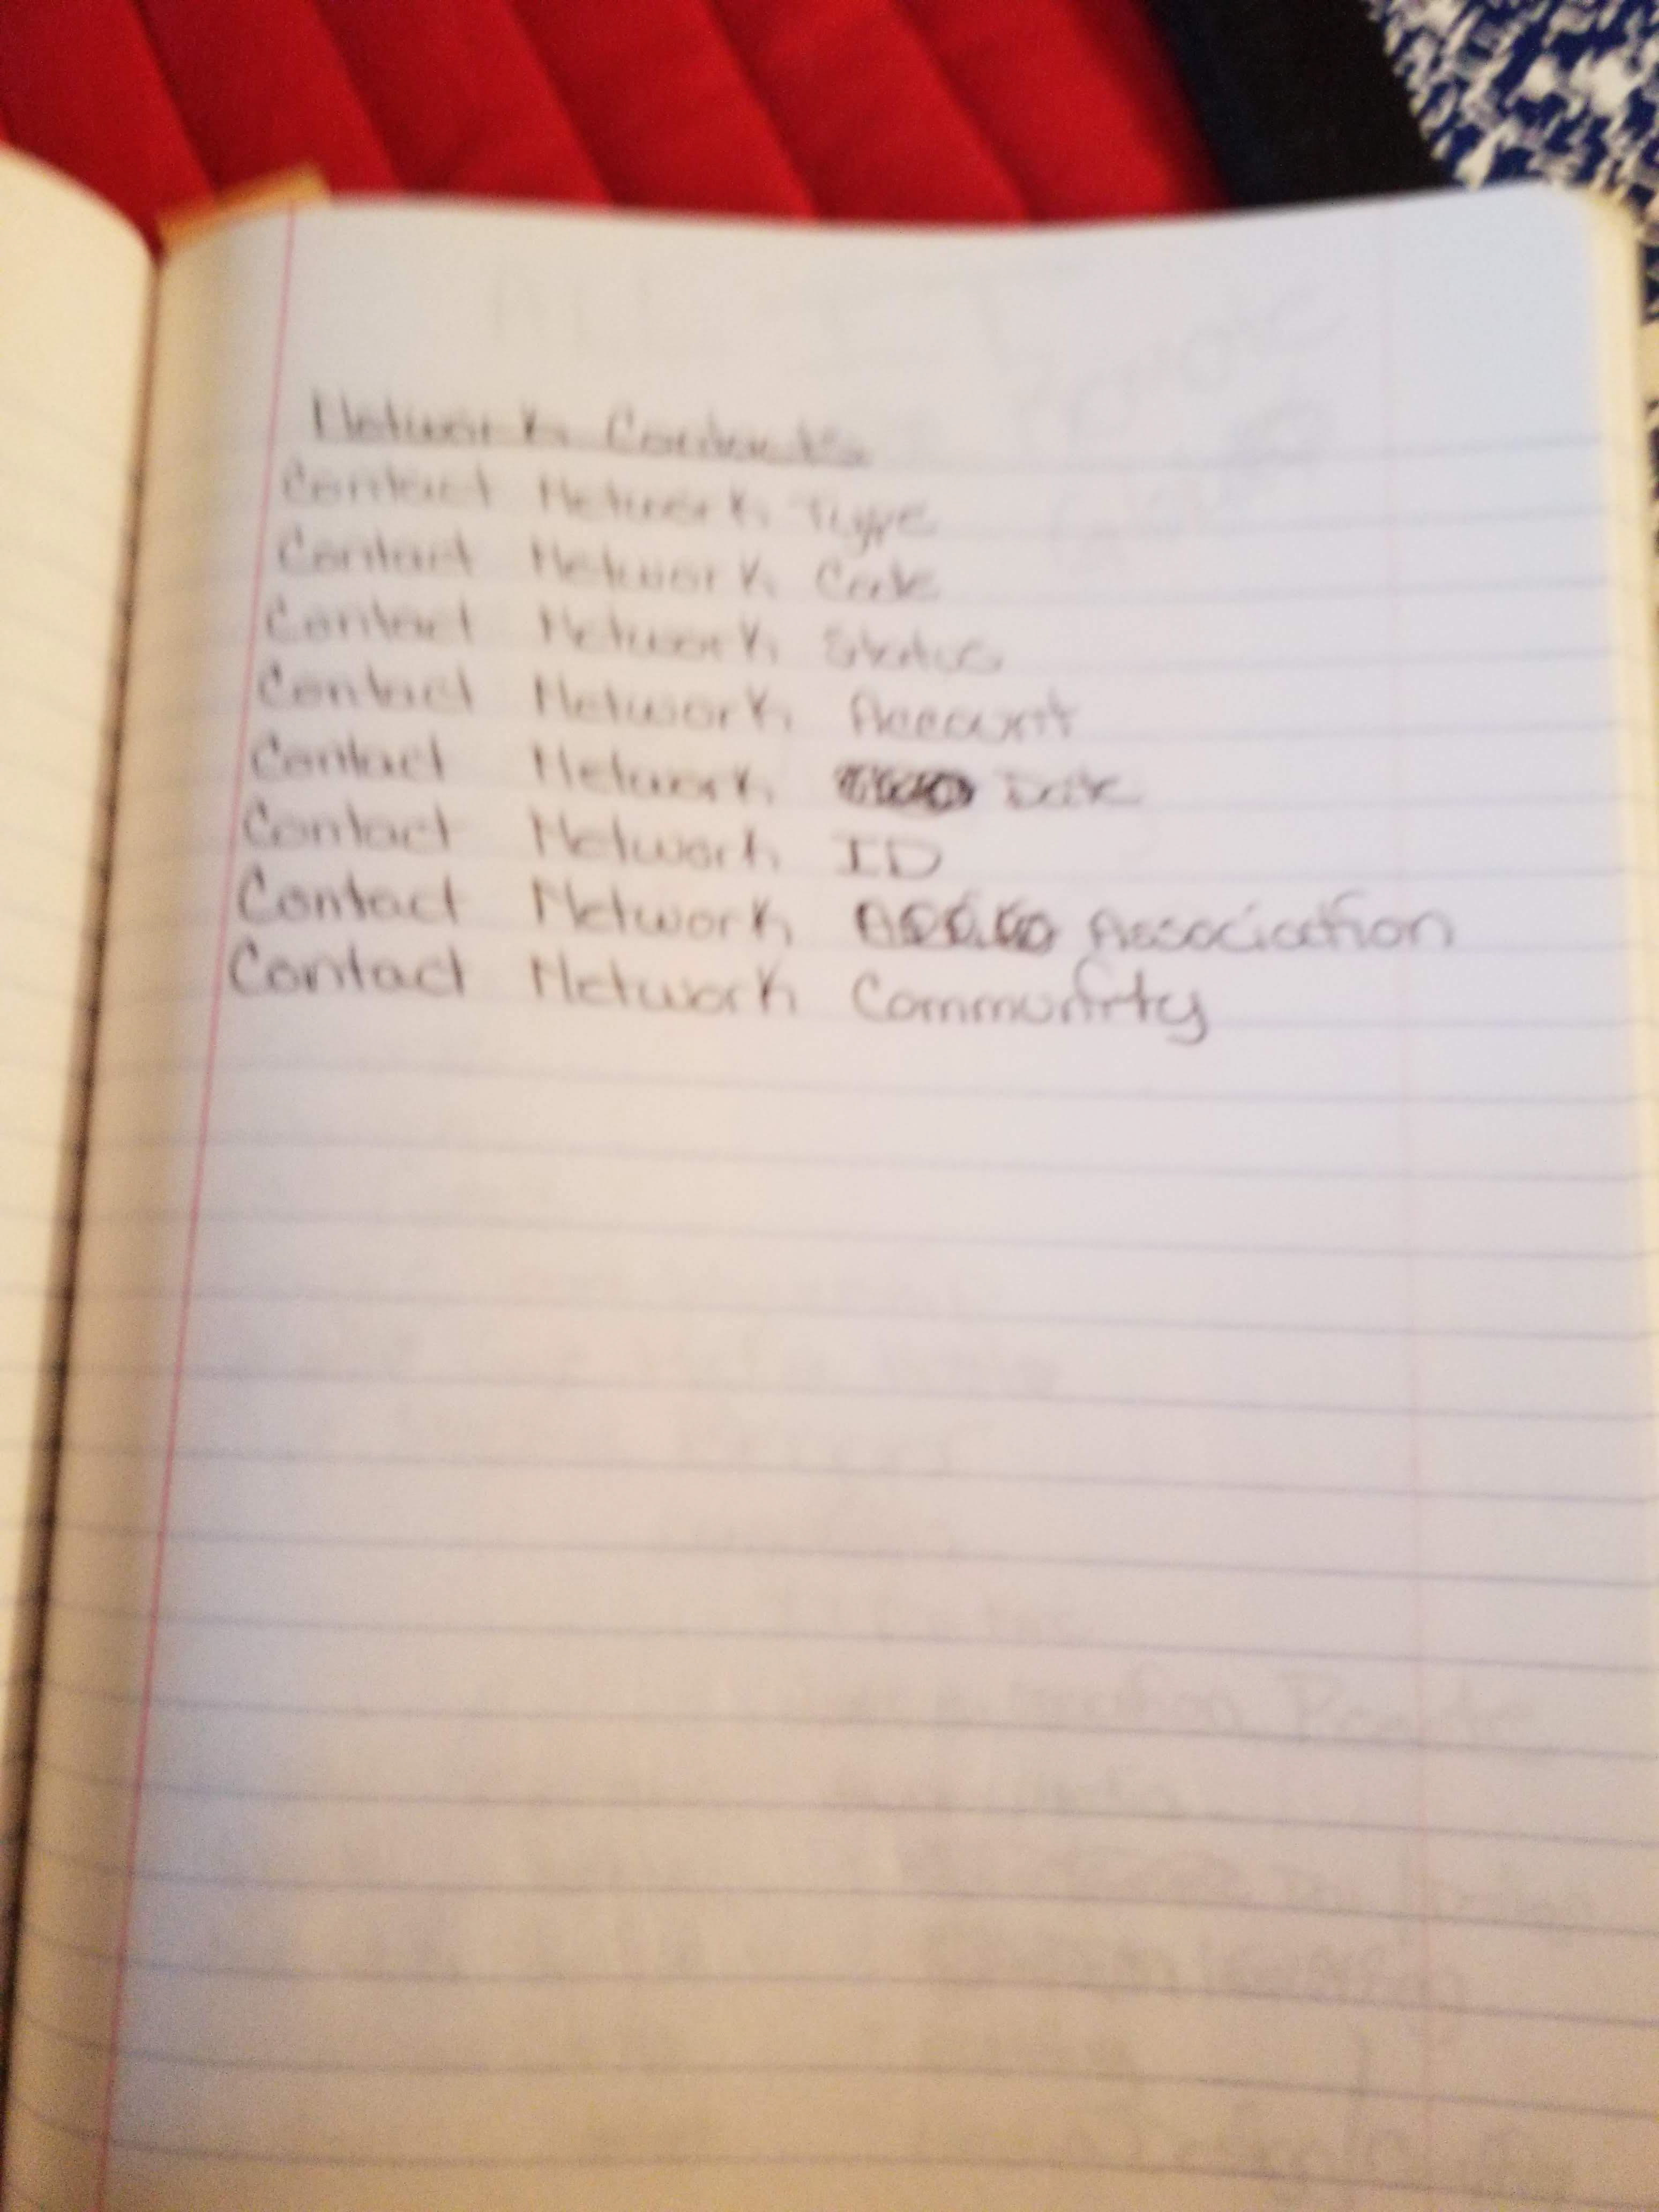 Network Contacts
Contact Network Type
Contact Network Code
Contact Network Status
Contact Network Account
Contact Network Date
Contact Network ID
Contact Network Association
Contact Network Community